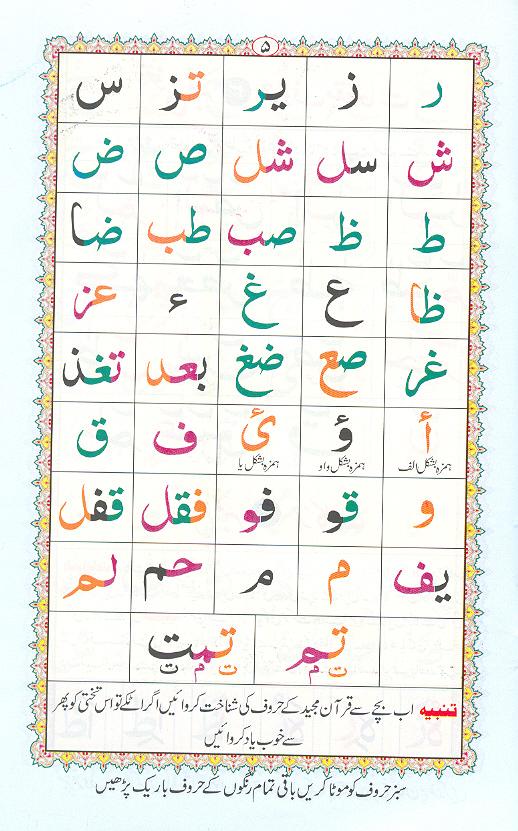 ۵
ر ز یر تز س
ش سل شل ص ض
ط ظ صب طب ضا
ظا ع غ ء عز
غر صع ضغ بعد تغذ
أ ؤ ئ ف ق
ہمزہ بشکل الف ہمزہ بشکل واو ہمزہ بشکل یا
و قو فو فقل قفل
یف م م حم لم
تم تمت
ت م ت م ت
تنبیه اب بچے سے قرآن مجید کے حروف کی شناخت کروائیں اگر اٹکے تو اس تختی کو پھر
سے خوب یاد کروائیں
سبز حروف کو موٹا کریں باقی تمام رنگوں کے حروف باریک پڑھیں